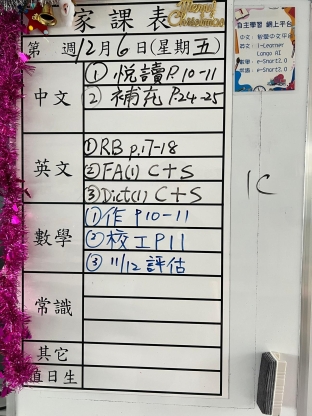 家課表
Merry Christmas
第 週 12月6日(星期五)
中文
① 悅讀P.10-11
② 補充P.24-25
英文
① RB p.17-18
② FA(1) C+S
③ Dict(1) C+S
數學
① 作 P10-11
② 校工P11
③ 11/12 評估
常識
其它
值日生
自主學習 網上平台
中文: 智愛中文平台
英文: i-Learner
數學: e-Smart2.0
常識: e-Smart2.0
1C